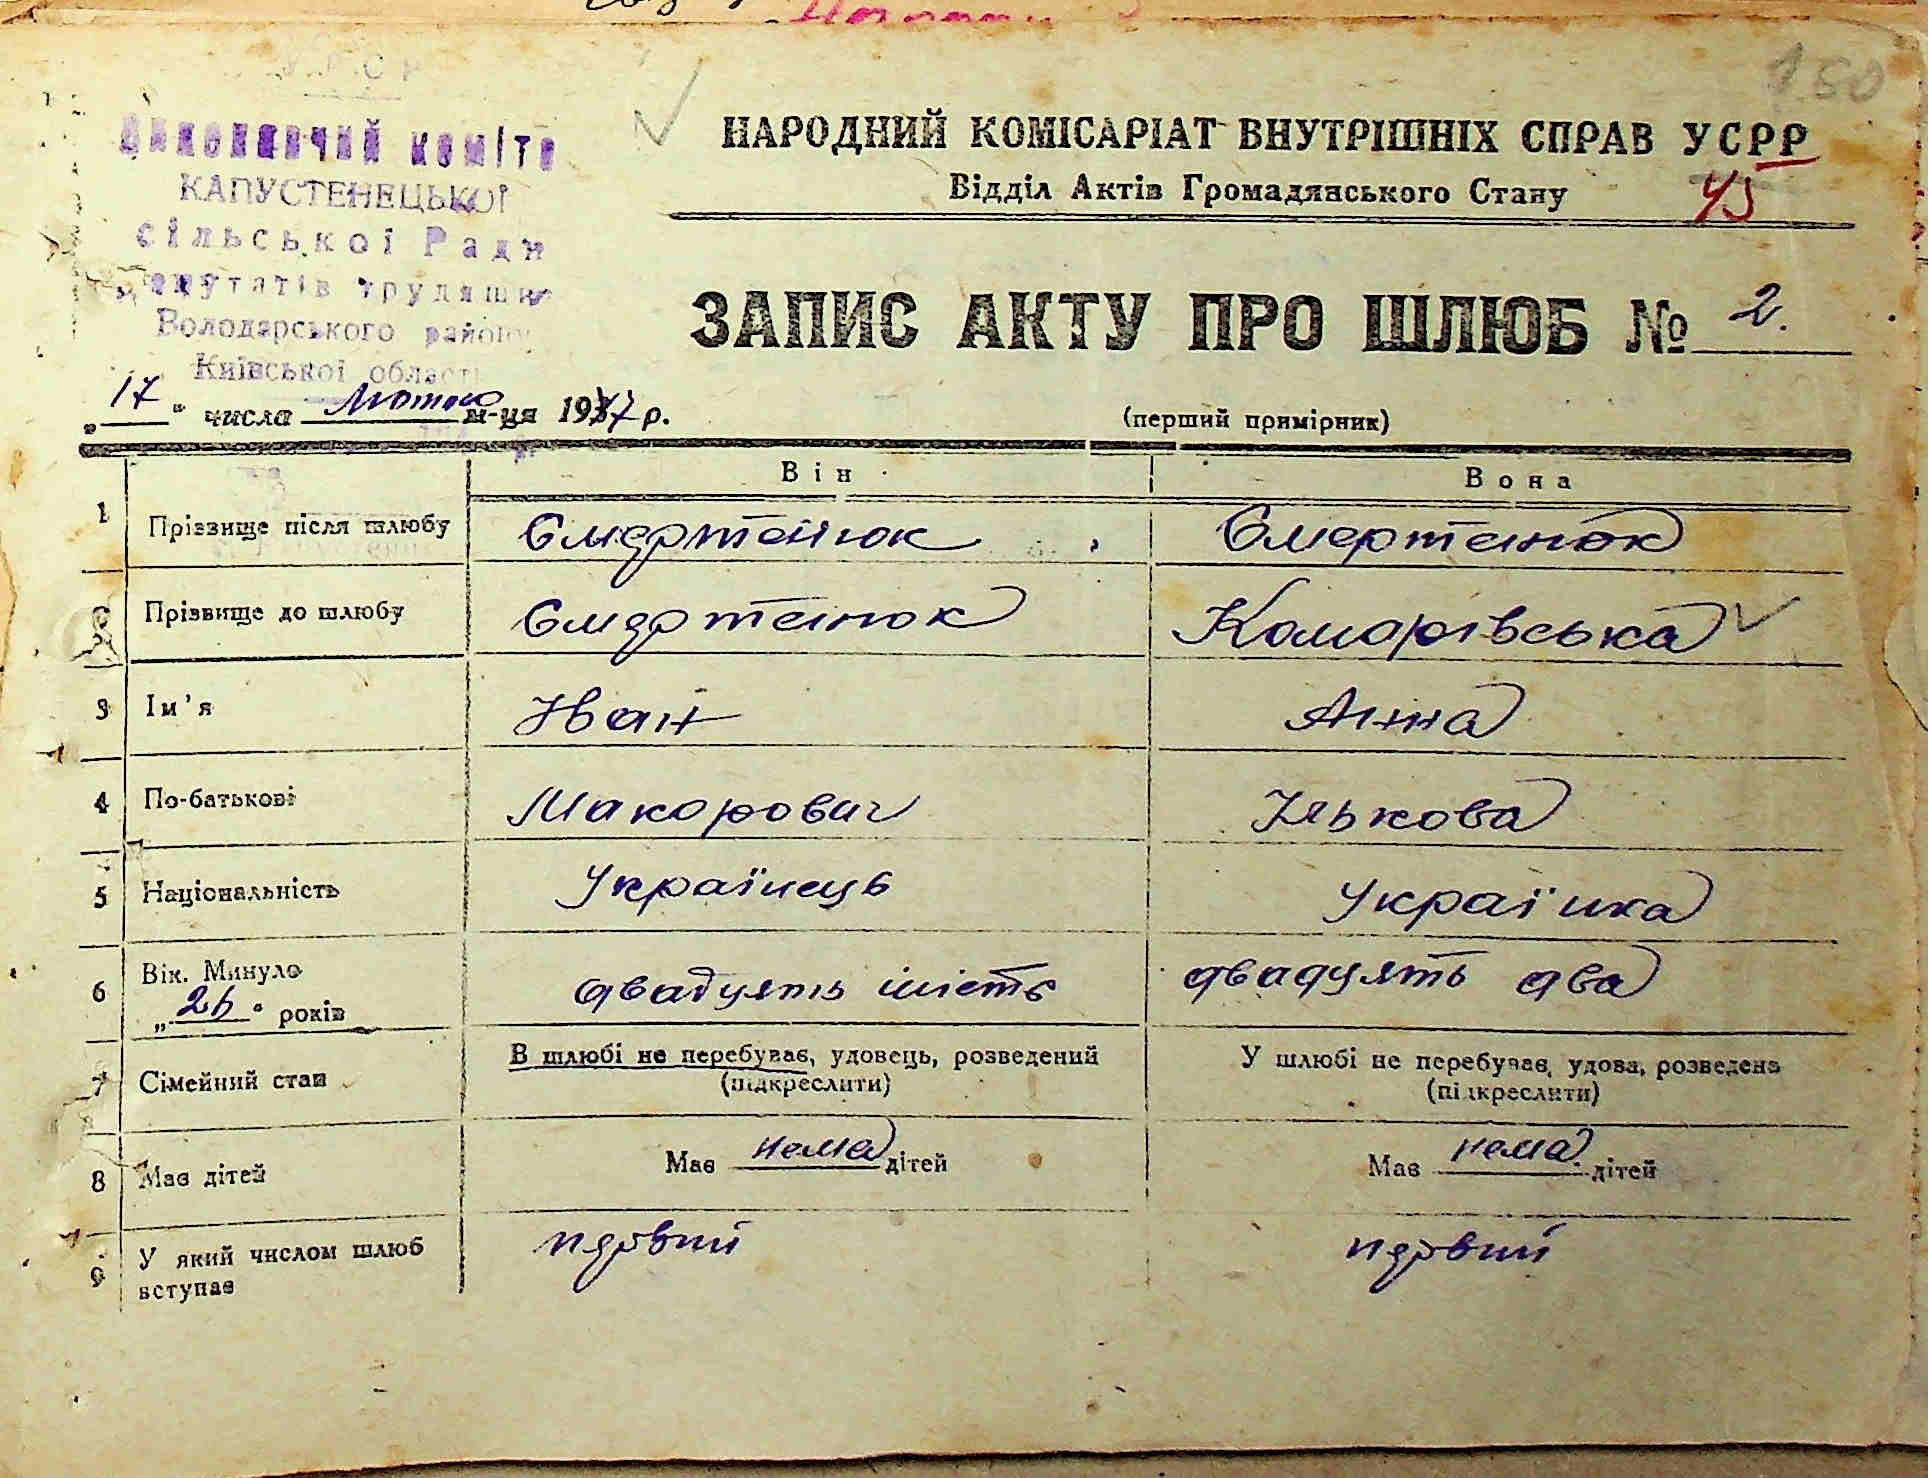 150
виконавчий коміте
КАПУСТЕНЕЦЬКОЇ
сільської Ради
депутатів трудящих
Володарського району
Київської області
НАРОДНИЙ КОМІСАРІАТ ВНУТРІШНІХ СПРАВ УСРР
Відділ Актів Громадянського Стану
45
ЗАПИС АКТУ ПРО ШЛЮБ № 2.
„17" числа Лютого м-ця 1947 р.
(перший примірник)
Він Вона
1 Прізвище після шлюбу Смертенюк Смертенюк
2 Прізвище до шлюбу Смертенюк Комарівська
3 Ім'я Іван Анна
4 По-батькові Макорович Ількова
5 Національність Українець Українка
6 Вік. Минуло „26" років двадцять шість двадцять два
7 Сімейний стан В шлюбі не перебуває, удовець, розведений (підкреслити) У шлюбі не перебуває, удова, розведена (підкреслити)
8 Має дітей Має нема дітей Має нема дітей
9 У який числом шлюб вступає первий первий